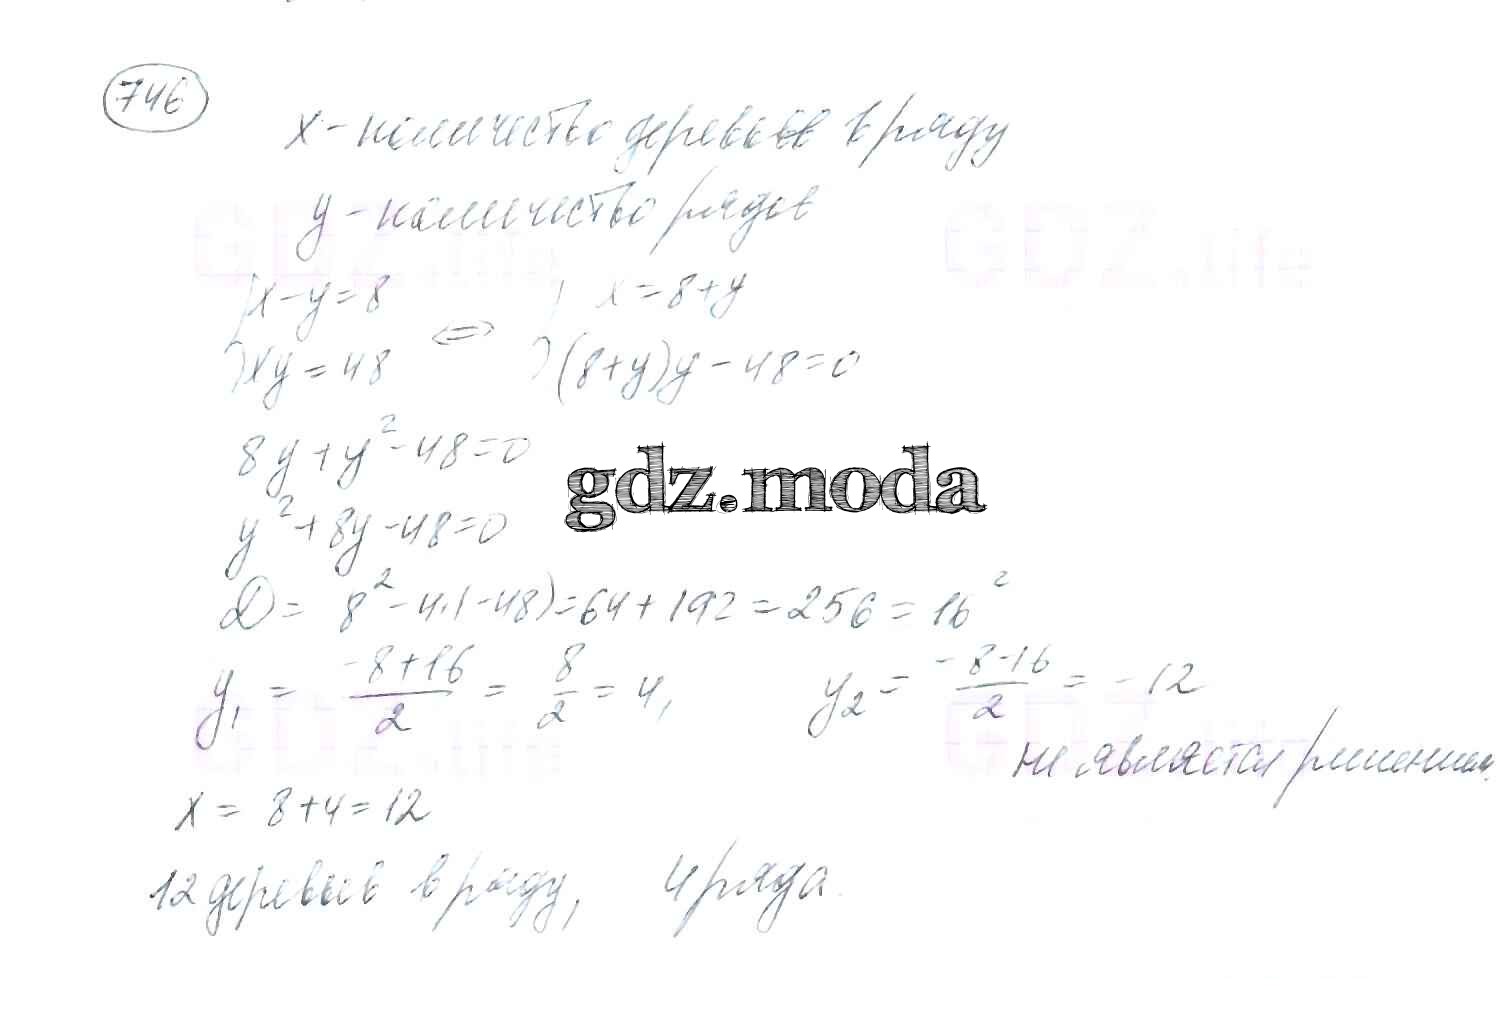 746
x - количество деревьев в ряду
y - количество рядов
x - y = 8 x = 8 + y
xy = 48 ⇔ (8 + y)y - 48 = 0
8y + y² - 48 = 0
gdz.moda
y² + 8y - 48 = 0
D = 8² - 4·(-48) = 64 + 192 = 256 = 16²
y₁ = (-8+16)/2 = 8/2 = 4, y₂ = (-8-16)/2 = -12
не является решением.
x = 8 + 4 = 12
12 деревьев в ряду, 4 ряда.
GDZ.life
GDZ.life
GDZ.life
GDZ.life